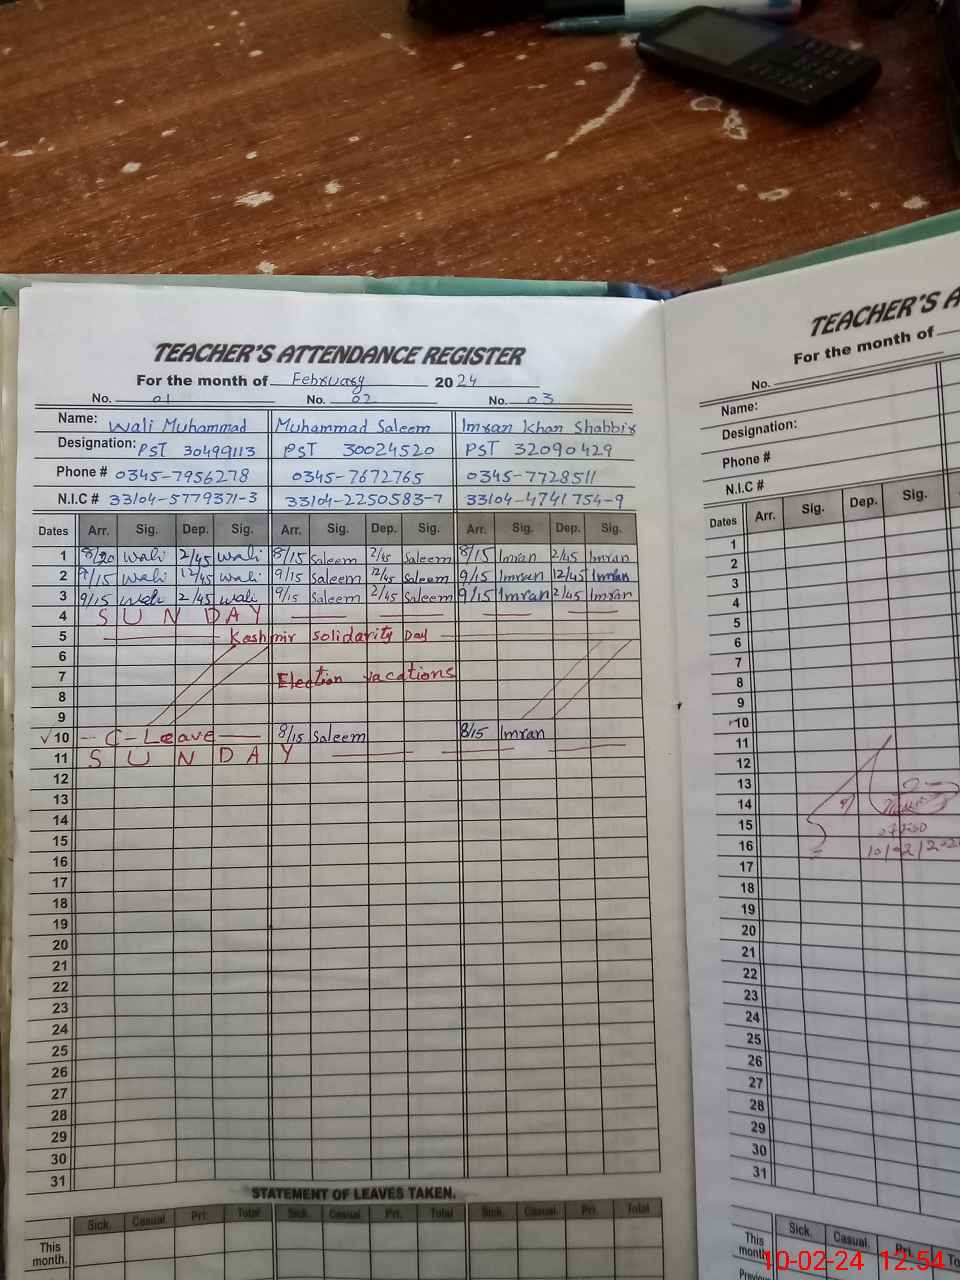 TEACHER'S ATTENDANCE REGISTER
For the month of February 2024
No. 01 No. 02 No. 03
Name: Wali Muhammad Muhammad Saleem Imran Khan Shabbir
Designation: PST 30499113 PST 30024520 PST 32090429
Phone # 0345-7956278 0345-7672765 0345-7728511
N.I.C # 33104-5779371-3 33104-2250583-7 33104-4741754-9
Dates Arr. Sig. Dep. Sig. Arr. Sig. Dep. Sig. Arr. Sig. Dep. Sig.
1 8/20 Wali 2/45 Wali 8/15 Saleem 2/45 Saleem 8/15 Imran 2/45 Imran
2 9/15 Wali 12/45 Wali 9/15 Saleem 12/45 Saleem 9/15 Imran 12/45 Imran
3 9/15 Wali 2/45 Wali 9/15 Saleem 2/45 Saleem 9/15 Imran 2/45 Imran
4 SUNDAY
5 Kashmir solidarity Day
6
7 Election vacations
8
9
10 C-Leave 8/15 Saleem 8/15 Imran
11 SUNDAY
12
13
14
15
16
17
18
19
20
21
22
23
24
25
26
27
28
29
30
31
STATEMENT OF LEAVES TAKEN.
Sick. Casual. Pri. Total Sick. Casual. Pri. Total Sick. Casual. Pri. Total
This month.
TEACHER'S A
For the month of
No.
Name:
Designation:
Phone #
N.I.C #
Dates Arr. Sig. Dep. Sig.
1
2
3
4
5
6
7
8
9
10
11
12
13
14
15
16
17
18
19
20
21
22
23
24
25
26
27
28
29
30
31
Sick. Casual. Pri.
This month
10-02-24 12:54